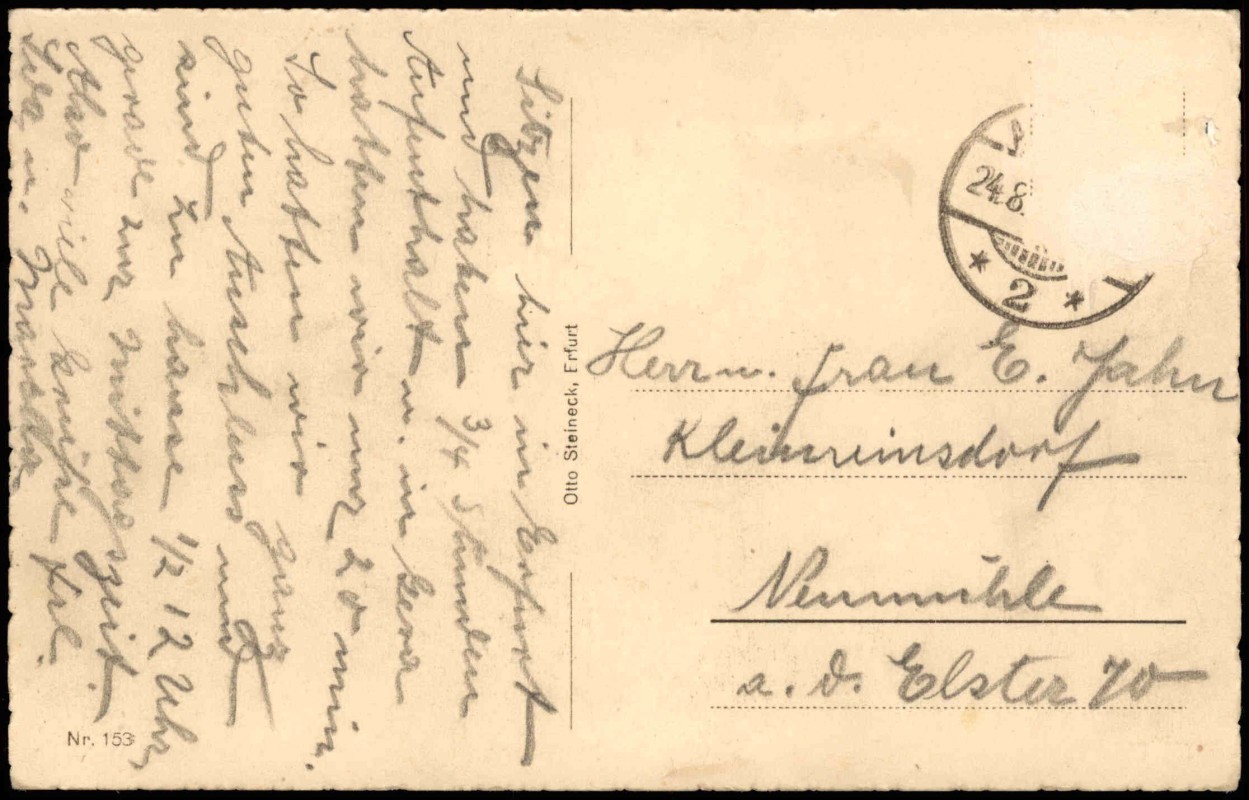 Sitzen hier in Erfurt
und haben 3/4 Stunden
Aufenthalt u. in Gera
hatten wir nur 20 min.
So hatten wir ganz
guten Anschluss und
sind zu hause 1/2 12 Uhr
grade zur Mittagszeit.
Also viele Grüße Frl.
Ida u.
Nr. 153
Otto Steineck, Erfurt
24.8.
* 2 *
Herr u. Frau E. Jahn
Kleinreinsdorf
Neumühle
a. d. Elster 70